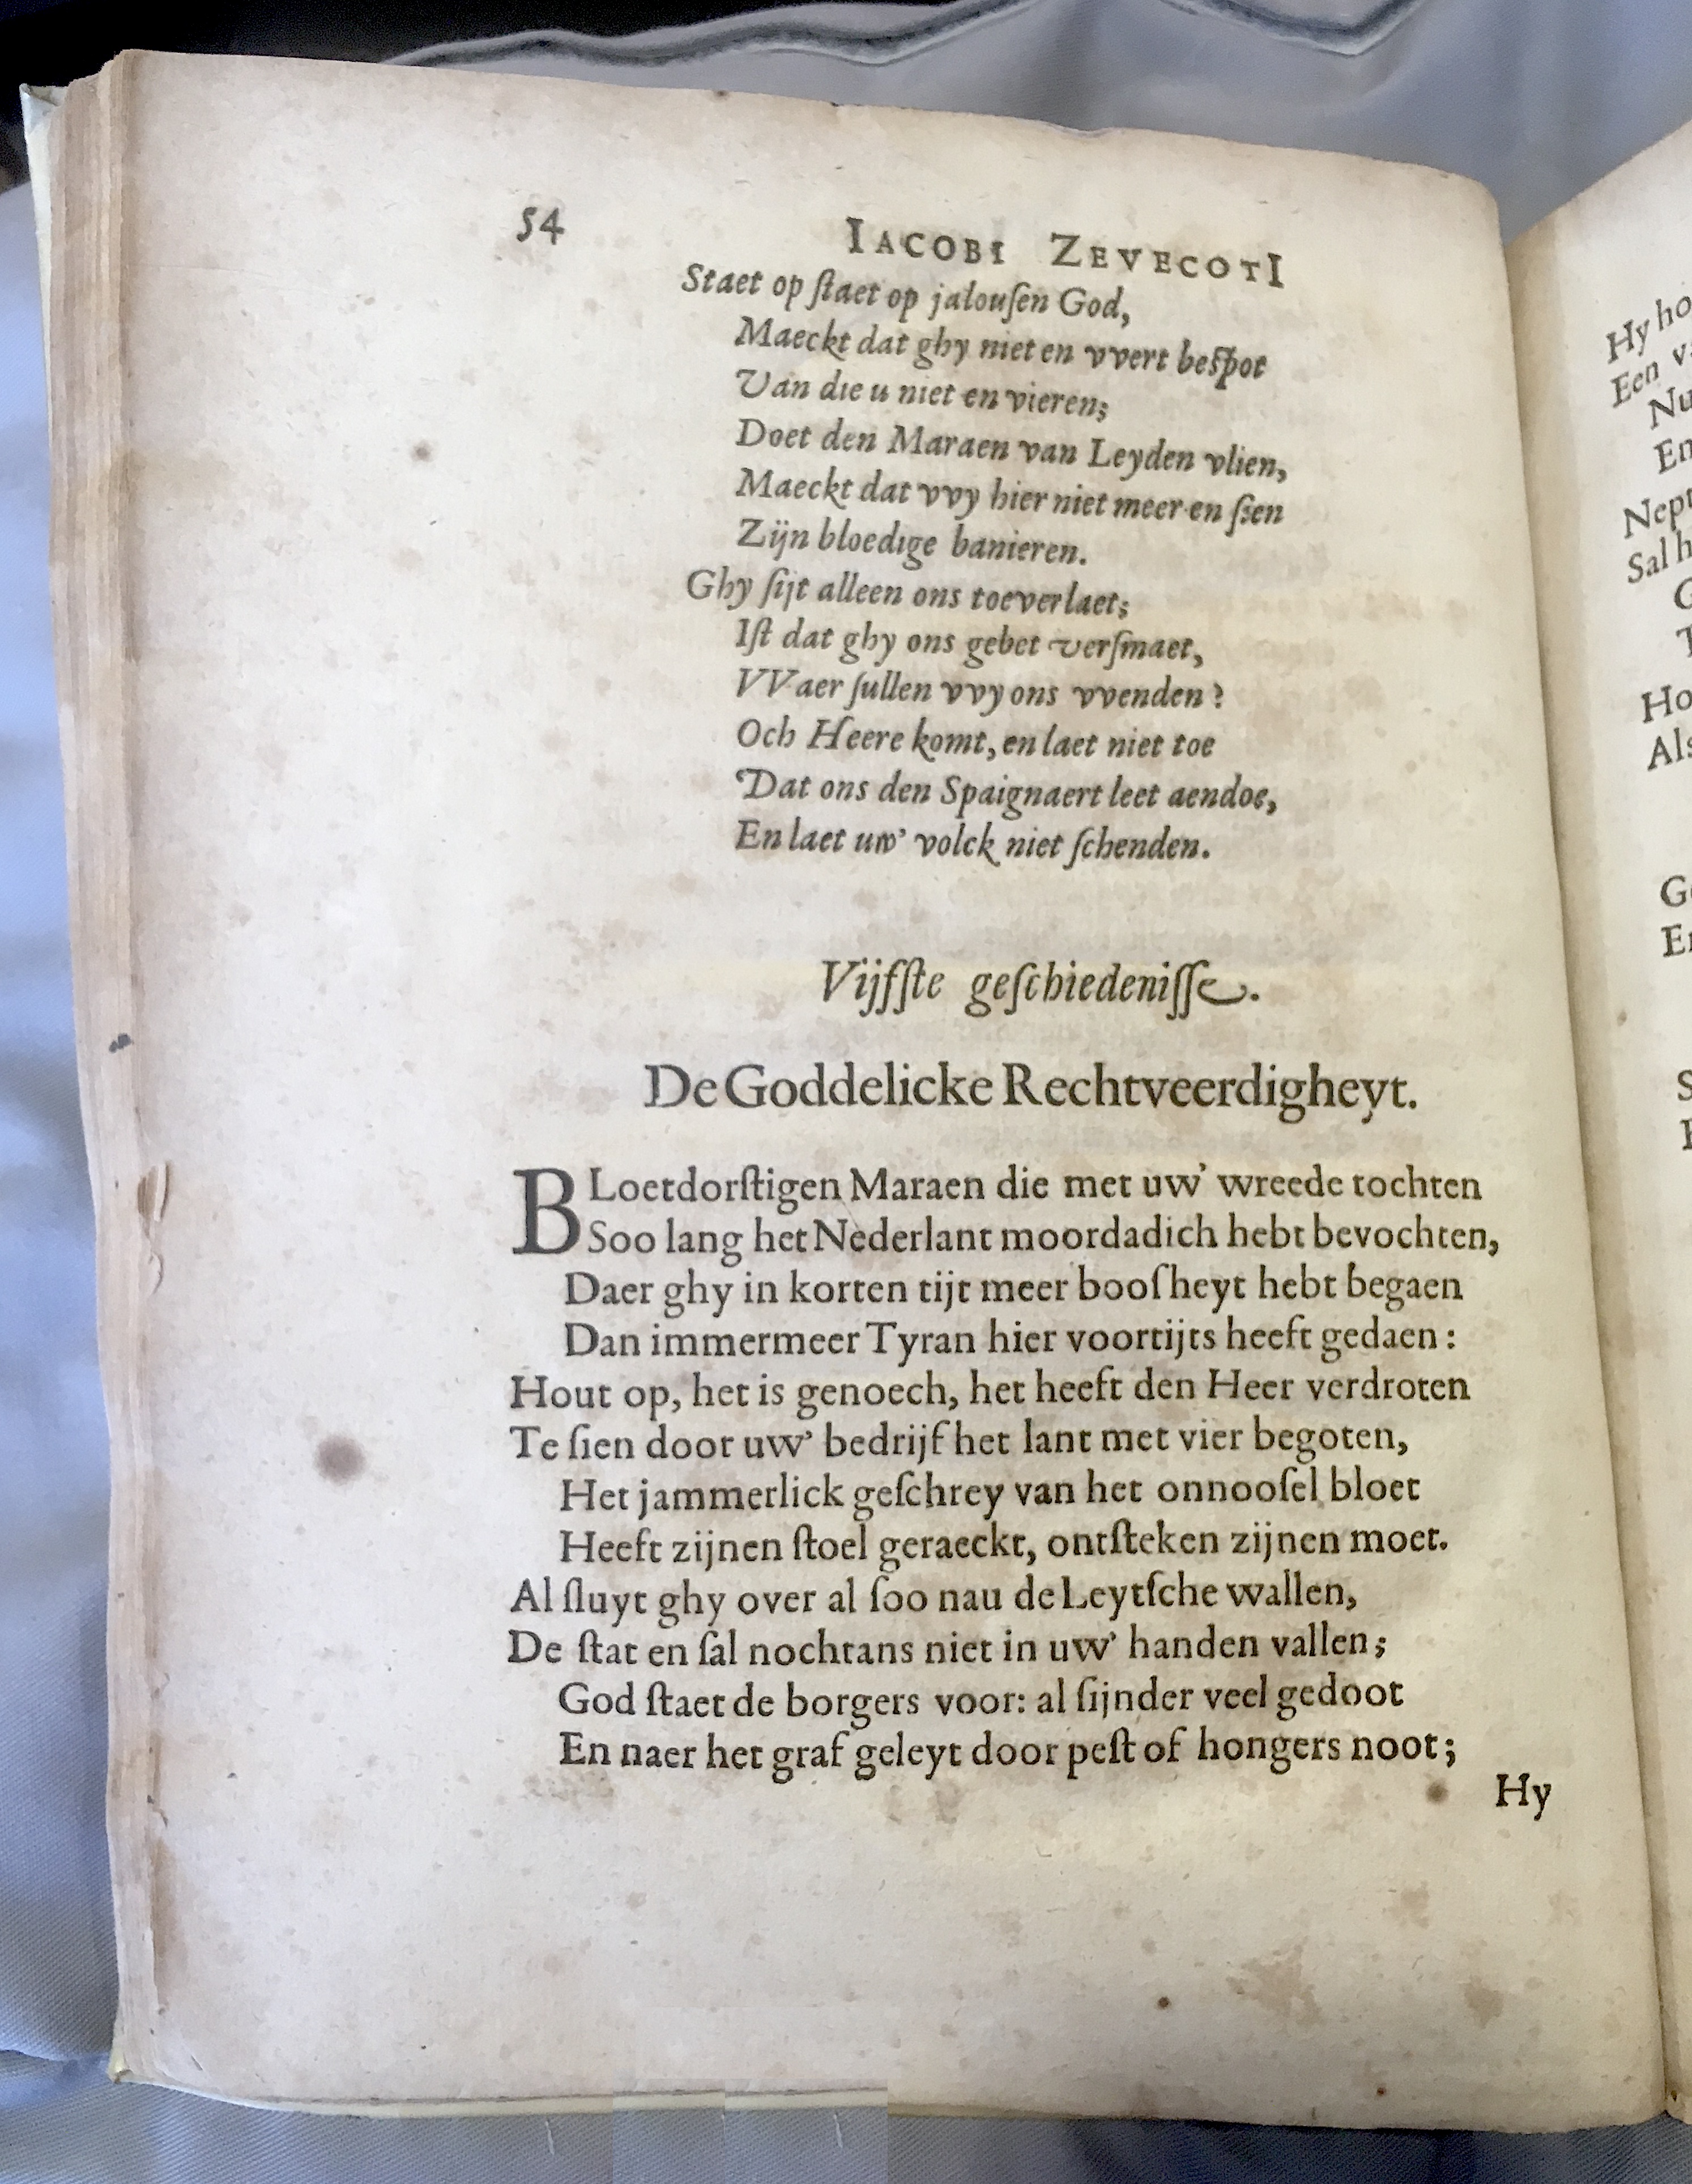 54 IACOBI ZEVECOTI
Staet op ſtaet op jalouſen God,
Maeckt dat ghy niet en vvert beſpot
Van die u niet en vieren;
Doet den Maraen van Leyden vlien,
Maeckt dat vvy hier niet meer en ſien
Zijn bloedige banieren.
Ghy ſijt alleen ons toeverlaet;
Iſt dat ghy ons gebet verſmaet,
VVaer ſullen vvy ons vvenden?
Och Heere komt, en laet niet toe
Dat ons den Spaignaert leet aendoe,
En laet uw' volck niet ſchenden.
Vijfſte geſchiedeniſſe.
De Goddelicke Rechtveerdigheyt.
BLoetdorſtigen Maraen die met uw' wreede tochten
Soo lang het Nederlant moordadich hebt bevochten,
Daer ghy in korten tijt meer booſheyt hebt begaen
Dan immermeer Tyran hier voortijts heeft gedaen:
Hout op, het is genoech, het heeft den Heer verdroten
Te ſien door uw' bedrijf het lant met vier begoten,
Het jammerlick geſchrey van het onnooſel bloet
Heeft zijnen ſtoel geraeckt, ontſteken zijnen moet.
Al ſluyt ghy over al ſoo nau de Leytſche wallen,
De ſtat en ſal nochtans niet in uw' handen vallen;
God ſtaet de borgers voor: al ſijnder veel gedoot
En naer het graf geleyt door peſt of hongers noot;
Hy
Hy
Een
Nu
En
Sal
Ho
Als